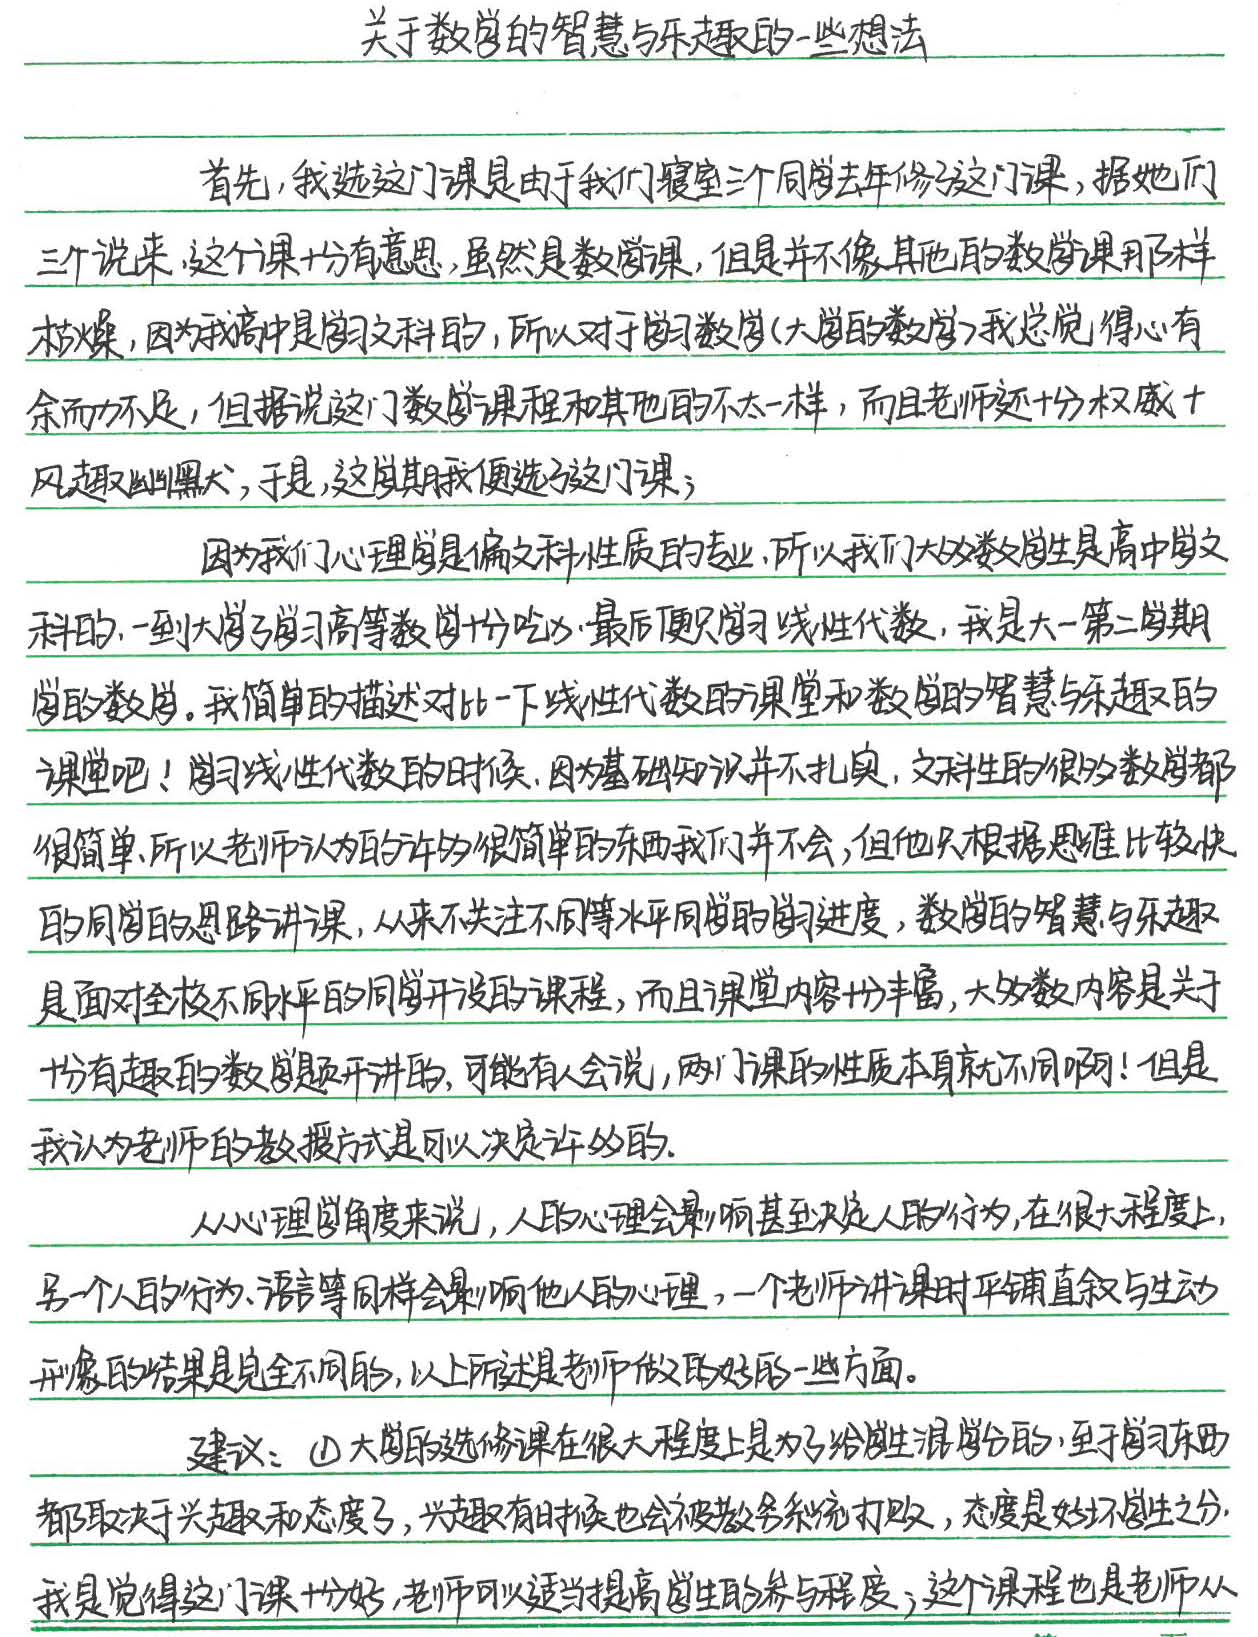 关于数学的智慧与乐趣的一些想法
首先,我选这门课是由于我们寝室三个同学去年修了这门课,据她们
三个说来,这个课十分有意思,虽然是数学课,但是并不像其他的数学课那样
枯燥,因为我高中是学习文科的,所以对于学习数学(大学的数学)我总觉得心有
余而力不足,但据说这门数学课程和其他的不太一样,而且老师还十分权威十
风趣幽默,于是,这学期我便选了这门课;
因为我们心理学是偏文科性质的专业,所以我们大多数学生是高中学文
科的,一到大学了学习高等数学十分吃力,最后便只学习线性代数,我是大一第二学期
学的数学。我简单的描述对比一下线性代数的课堂和数学的智慧与乐趣的
课堂吧!学习线性代数的时候,因为基础知识并不扎实,文科生的很多数学都
很简单,所以老师认为的许多很简单的东西我们并不会,但他只根据思维比较快
的同学的思路讲课,从来不关注不同等水平同学的学习进度,数学的智慧与乐趣
是面对全校不同水平的同学开设的课程,而且课堂内容十分丰富,大多数内容是关于
十分有趣的数学题开讲的,可能有人会说,两门课的性质本身就不同啊!但是
我认为老师的教授方式是可以决定许多的.
从心理学角度来说,人的心理会影响甚至决定人的行为,在很大程度上,
另一个人的行为、语言等同样会影响他人的心理,一个老师讲课时平铺直叙与生动
形象的结果是完全不同的,以上所述是老师做的好的一些方面。
建议:①大学的选修课在很大程度上是为了给学生混学分的,至于学习东西
都取决于兴趣和态度了,兴趣有时候也会被教务系统打败,态度是好坏学生之分.
我是觉得这门课十分好,老师可以适当提高学生的参与程度;这个课程也是老师从